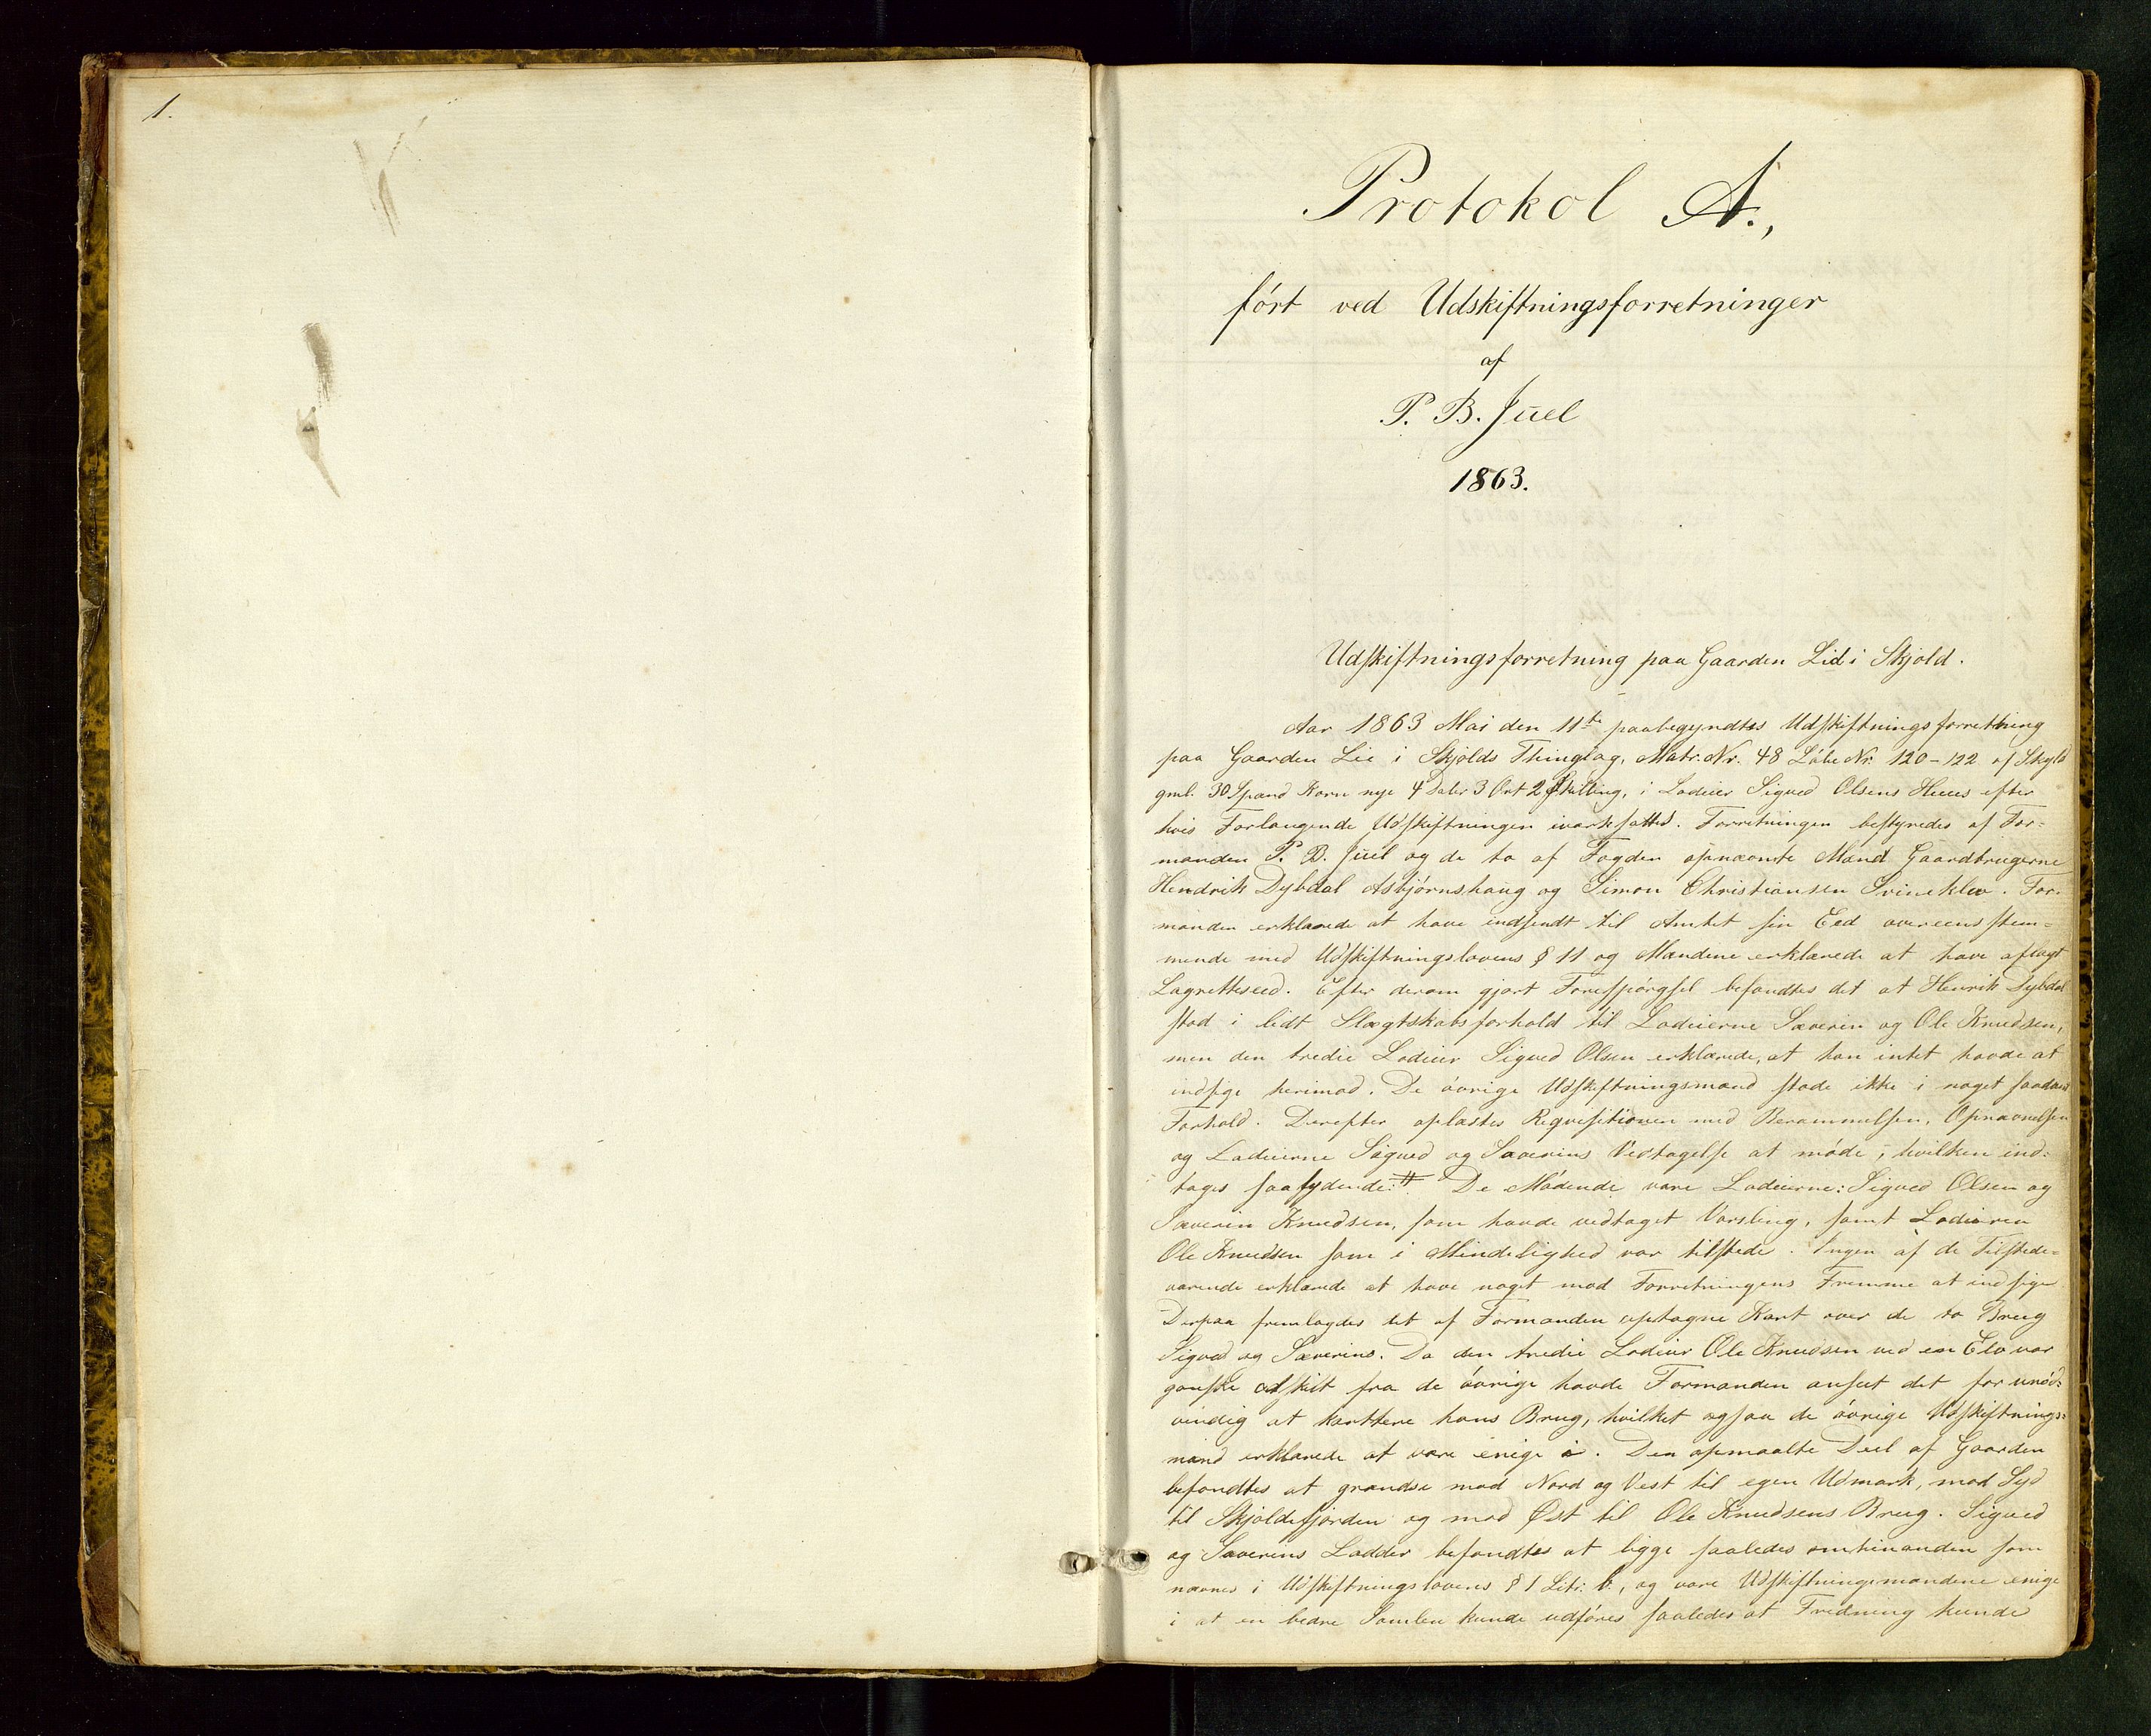 1.
Protokol A.,
fört ved Udskiftningsforretninger
af
P. B. Juel
1863.
Udskiftningsforretning paa Gaarden Lid i Skjold.
Aar 1863 Mai den 11te paabegyndtes Udskiftningsforretning
paa Gaarden Lie i Skjolds Thinglag, Matr. Nr. 48 Löbe Nr. 120-122 af Skyld
gml. 30 Spand Korn nye 4 Daler 3 Ort 2 Skilling, i Lodeier Sigved Olsens Huus efter
hvis Forlangende Udskiftningen iværksattes. Forretningen bestyredes af For-
manden P. B. Juel og de to af Fogden opnævnte Mænd Gaardbrugerne
Hendrik Dybdal Asbjörnshaug og Simon Christiansen Svineklev. For-
manden erklærede at have indsendt til Amtet sin Eed overeensstem-
mende med Udskiftningslovens § 11 og Mændene erklærede at have aflagt
Lagretteseed. Efter derom gjort Forespörgsel befandtes det at Henrik Dybdal
stod i lidt Slægtskabsforhold til Lodeierne Sæverin og Ole Knudsen,
men den tredie Lodeier Sigved Olsen erklærede, at han intet havde at
indsige herimod. De övrige Udskiftningsmænd stode ikke i noget saadant
Forhold. Derefter oplæstes Requisitionen med Berammelsen, Opnævnelsen
og Lodeierne Sigved og Sæverins Vedtagelse at möde, hvilken ind-
tages saalydende: # De Mödende vare Lodeierne: Sigved Olsen og
Sæverin Knudsen, som havde vedtaget Varsling, samt Lodeieren
Ole Knudsen som i Mindelighed var tilstede. Ingen af de Tilstede-
værende erklærede at have noget mod Forretningens Fremme at indsige
Derpaa fremlagdes det af Formanden optagne Kart over de to Brug
Sigved og Sæverins. Da den tredie Lodeier Ole Knudsen ved en Elv var
ganske adskilt fra de övrige havde Formanden anseet det for unöd-
vendig at karttere hans Brug, hvilket ogsaa de övrige Udskiftnings-
mænd erklærede at være enige i. Den opmaalte Deel af Gaarden
befandtes at grændse mod Nord og Vest til egen Udmark, mod Syd
til Skjoldefjorden og mod Øst til Ole Knudsens Brug. Sigved
og Sæverins Lodder befandtes at ligge saaledes omhinanden som
nævnes i Udskiftningslovens § 1 Litr: b, og vare Udskiftningsmændene enige
i at en bedre Samlen kunde udföres saaledes at Fredning kunde